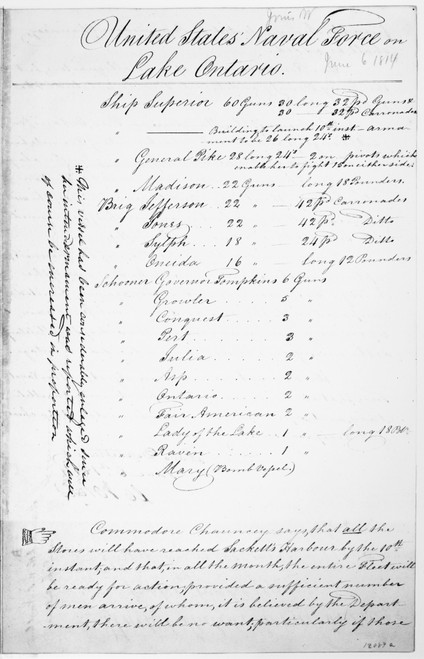 June 6 1814
United States' Naval Force on
Lake Ontario.
Ship Superior 60 Guns 30 long 32 pd Guns &
30 — 32 pd Carronades
" ——— Building to launch 10th inst - arma-
ment to be 26 long 24s. #
" General Pike 28 long 24s - 2 on pivots which
enable her to fight 16 on either side.
" Madison . 22 Guns — long 18 Pounders.
Brig Jefferson . 22 " — 42 Pd. Carronades
" Jones . . 22 " 42 Pd. Ditto
" Sylph . . 18 " 24 Pd. Ditto
" Oneida . . 16 " — long 12 Pounders
Schooner Governor Tompkins 6 Guns
" Growler . . . . . 5 "
" Conquest . . . . 3 "
" Pert . . . . . . 3 "
" Julia . . . . . . 2 "
" Asp . . . . . . 2 "
" Ontario . . . . . 2 "
" Fair American 2 "
" Lady of the Lake . 1 " — long 18 Pdr.
" Raven . . . . . 1 "
" Mary (Bomb Vessel.)
# This vessel had been considerably enlarged since
her intended armament was reported which will
of course be increased in proportion
Commodore Chauncey says, that all the
Stores will have reached Sacketts Harbour by the 10th
instant, and that, in all the month, the entire Fleet will
be ready for action, provided a sufficient number
of men arrive, of whom, it is believed by the Depart-
ment, there will be no want, particularly if those